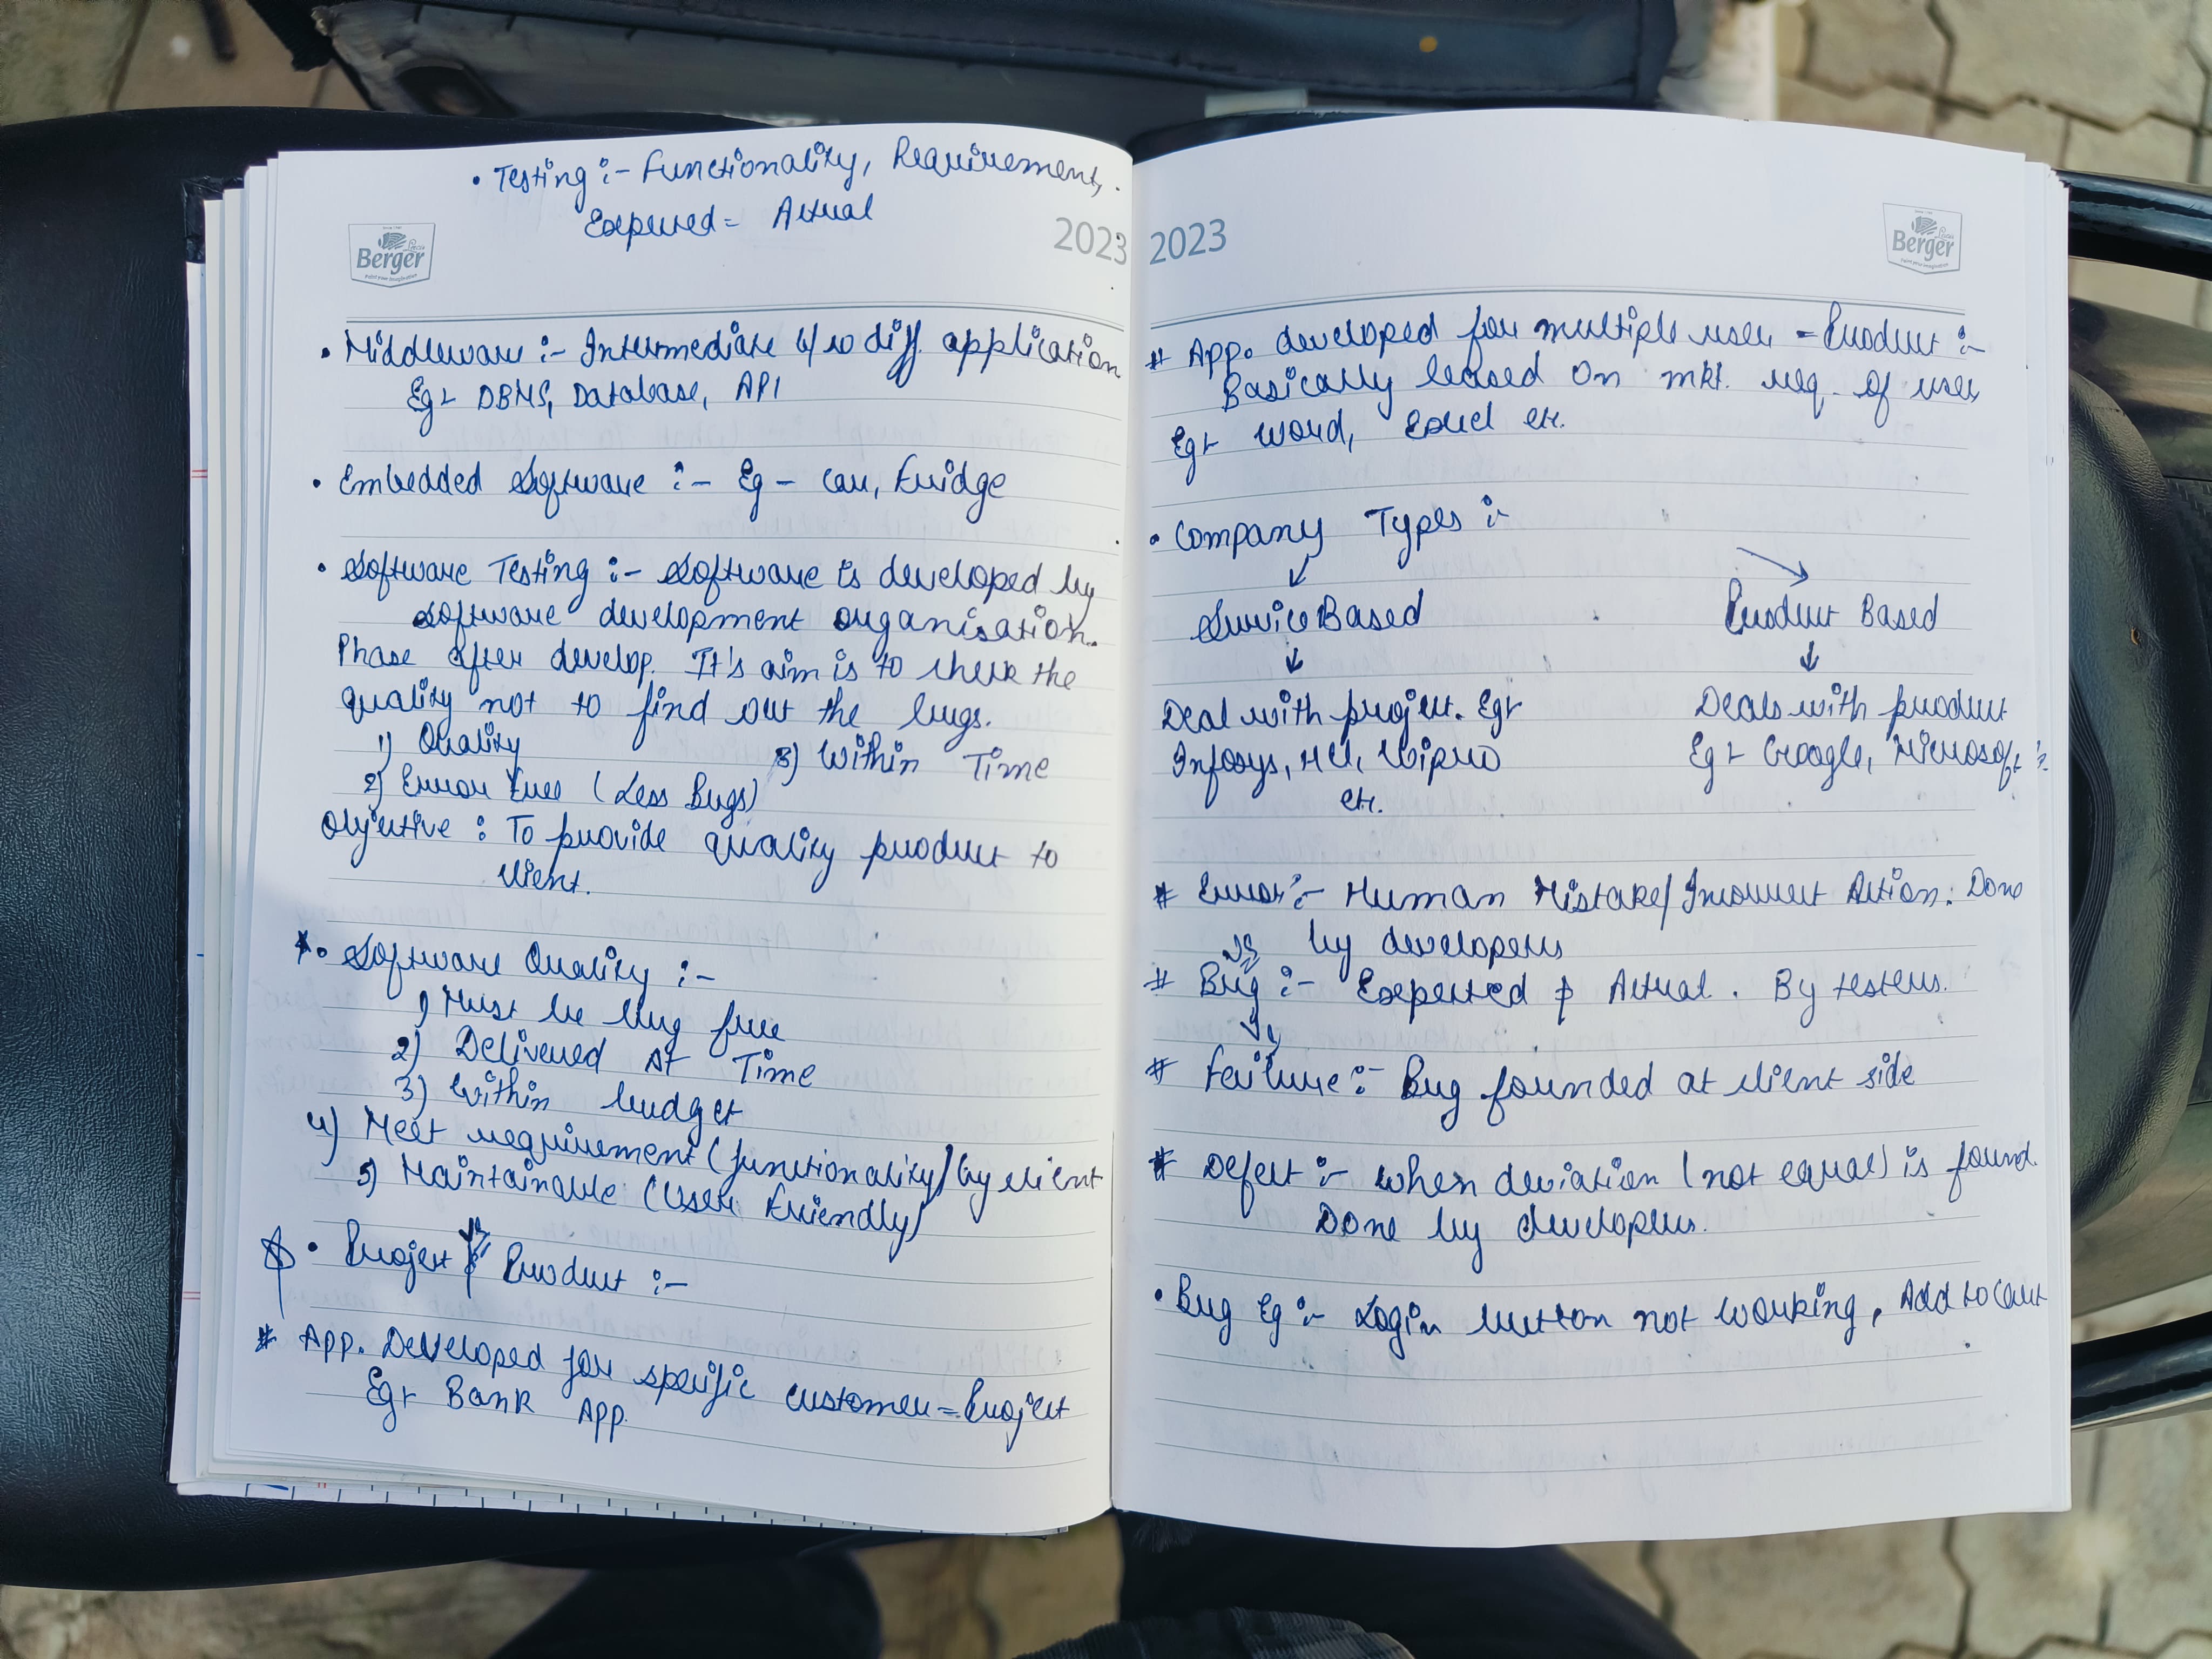 • Testing :- Functionality, Requirement,
Expected = Actual
Berger
2023
• Middleware :- Intermediate b/w diff. application
Eg:- DBMS, Database, API
• Embedded Software :- Eg - Car, Fridge
• Software Testing :- Software is developed by
software development organisation.
Phase after develop. It's aim is to check the
quality not to find out the bugs.
1) Quality
3) Within Time
2) Error Free (Less Bugs)
Objective : To provide quality product to
client.
• Software Quality :-
1) Must be bug free
2) Delivered At Time
3) Within budget
4) Meet requirement (functionality) by client
5) Maintainable (User Friendly)
• Project & Product :-
# App. Developed for specific customer = Project
Eg:- Bank App.
2023
Berger
# App. developed for multiple user = Product :-
Basically based on mkt. req. of user
Eg:- Word, Excel etc.
• Company Types :-
Service Based
Product Based
Deal with project. Eg:-
Deals with product
Infosys, HCL, Wipro
Eg:- Google, Microsoft
etc.
# Error :- Human Mistake/Incorrect Action. Done
by developers
# Bug :- Expected ≠ Actual. By testers.
# Failure :- Bug founded at client side
# Defect :- when deviation (not equal) is found.
Done by developers.
• Bug Eg :- Login button not working, Add to Cart